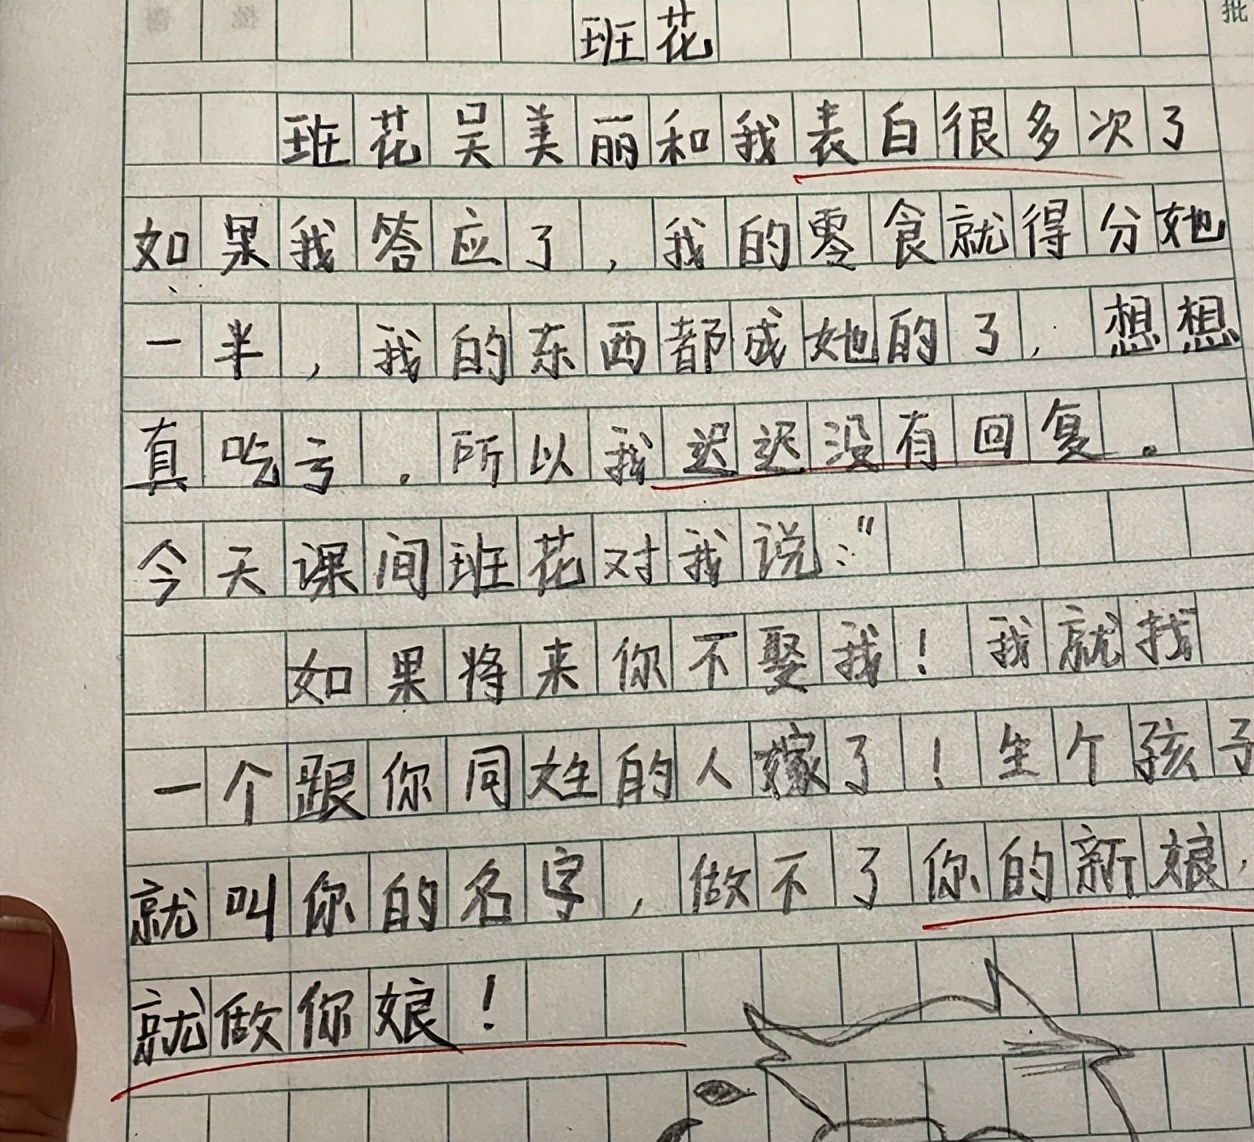 班花
班花吴美丽和我表白很多次了
如果我答应了,我的零食就得分她
一半,我的东西都成她的了,想想
真吃亏.所以我迟迟没有回复。
今天课间班花对我说:"
如果将来你不娶我!我就找
一个跟你同姓的人嫁了!生个孩子
就叫你的名字,做不了你的新娘,
就做你娘!
批